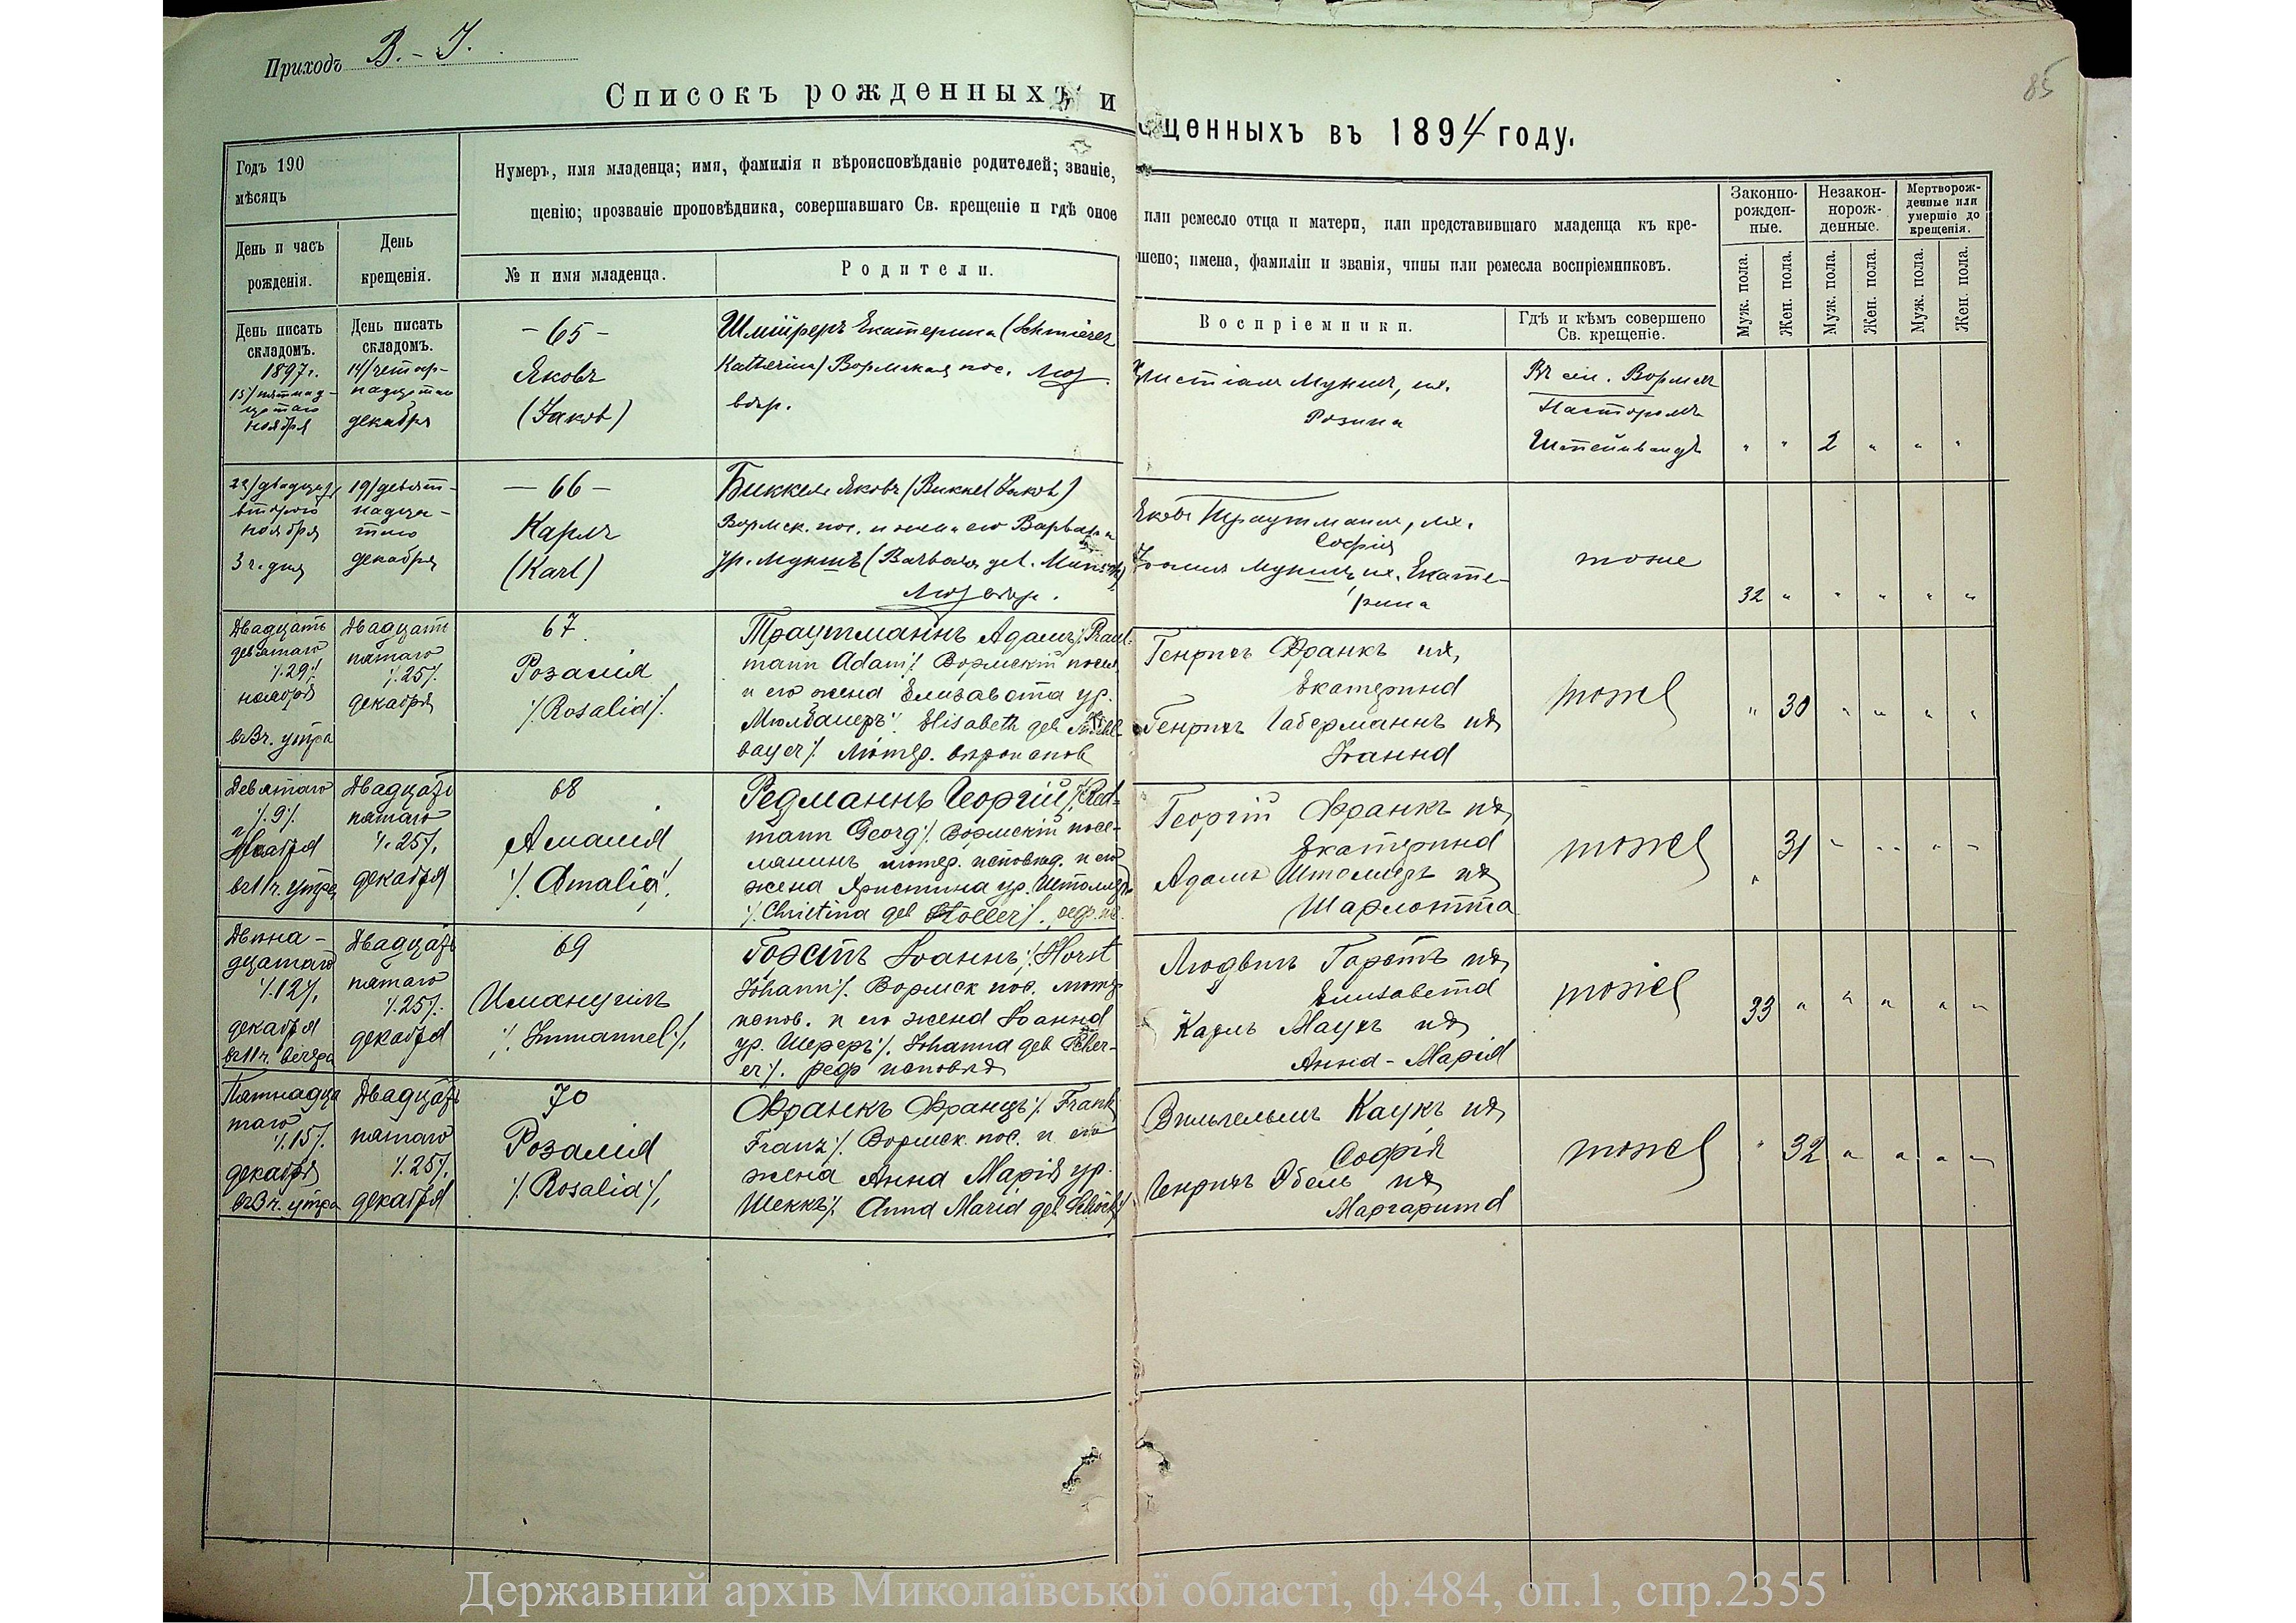 Приходъ В.-I.
Списокъ рожденныхъ и
щенныхъ въ 1897 году.
85
Годъ 190
мѣсяцъ
День и часъ
рожденія.
День
крещенія.
Нумеръ, имя младенца; имя, фамилія и вѣроисповѣданіе родителей; званіе,
щенію; прозваніе проповѣдника, совершавшаго Св. крещеніе и гдѣ оное
№ и имя младенца.
Родители.
или ремесло отца и матери, или представившаго младенца къ кре-
шено; имена, фамиліи и званія, чины или ремесла воспріемниковъ.
Воспріемники.
Гдѣ и кѣмъ совершено
Св. крещеніе.
Законно-
рожден-
ные.
Незакон-
норож-
денные.
Мертворож-
денные или
умершіе до
крещенія.
Муж. пола.
Жен. пола.
Муж. пола.
Жен. пола.
Муж. пола.
Жен. пола.
День писать
складомъ.
1897г.
15/пятнад-
цатаго
ноября
День писать
складомъ.
14/четыр-
надцатаго
декабря
-65-
Яковъ
(Jakob)
Шмиреръ Екатерина (Schmierer
Katherina) Вормская пос. Лют
вѣр.
Христіанъ Муншъ, их.
Розина
Въ сел. Вормсъ
Пасторомъ
Штейнвандъ
" " 2 " " "
22/двадцать
втораго
ноября
3 ч. дня
19/девят-
надца-
таго
декабря
-66-
Карлъ
(Karl)
Биккель Яковъ (Bickel Jakob)
Вормск. пос. и жена его Варвара
ур. Муншъ (Barbara geb. Münsch)
Лют. вѣр.
Яковъ Траутманъ, их.
Софія
Іоганъ Муншъ, их. Екате-
рина
тоже
32 " " " " "
Двадцать
девятаго
/.29./
ноября
въ 3ч. утра
Двадцать
пятаго
/.25./
декабря
67.
Розалія
/.Rosalia/.
Траутманнъ Адамъ/.Traut-
mann Adam/. Вормскій посел
и его жена Елизавета ур.
Мюлбаеръ/. Elisabeth geb Mühl-
bayer/. Лютер. вѣроиспов
Генрихъ Франкъ их,
Екатерина
Генрихъ Габерманнъ их
Іоанна
тоже
" 30 " " " "
Девятаго
/.9./
декабря
въ 11ч. утра
Двадцать
пятаго
/.25./
декабря
68
Амалія
/. Amalia/.
Редманнъ Георгій/.Red-
mann Georg/. Вормскій посе-
лянинъ лютер. исповѣд. и его
жена Христина ур. Штоллеръ
/.Christina geb Stoller/. реф. ис.
Георгій Франкъ их
Екатерина
Адамъ Штолцъ их
Шарлотта
тоже
" 31 " " " "
Двѣна-
дцатаго
/.12/.
декабря
въ 11ч. вечера
Двадцать
пятаго
/.25/.
декабря
69
Имануилъ
/. Immanuel/.
Горстъ Іоаннъ/.Horst
Johann/. Вормск пос. лютер
испов. и его жена Іоанна
ур. Шереръ/. Johanna geb Scher-
er/. реф исповѣд
Людвигъ Горстъ их
Елизавета
Карлъ Маукъ их
Анна-Марія
тоже
33 " " " " "
Пятнадца
таго
/.15/.
декабря
въ 3ч. утра
Двадцать
пятаго
/.25/.
декабря
70
Розалія
/. Rosalia/.
Франкъ Францъ/. Frank
Franz/. Вормск. пос. и его
жена Анна Марія ур.
Шеккъ/. Anna Maria geb Schöck/.
Вильгельмъ Каукъ их
Софія
Генрихъ Обель их
Маргарита
тоже
" 32 " " " "
Державний архів Миколаївської області, ф.484, оп.1, спр.2355